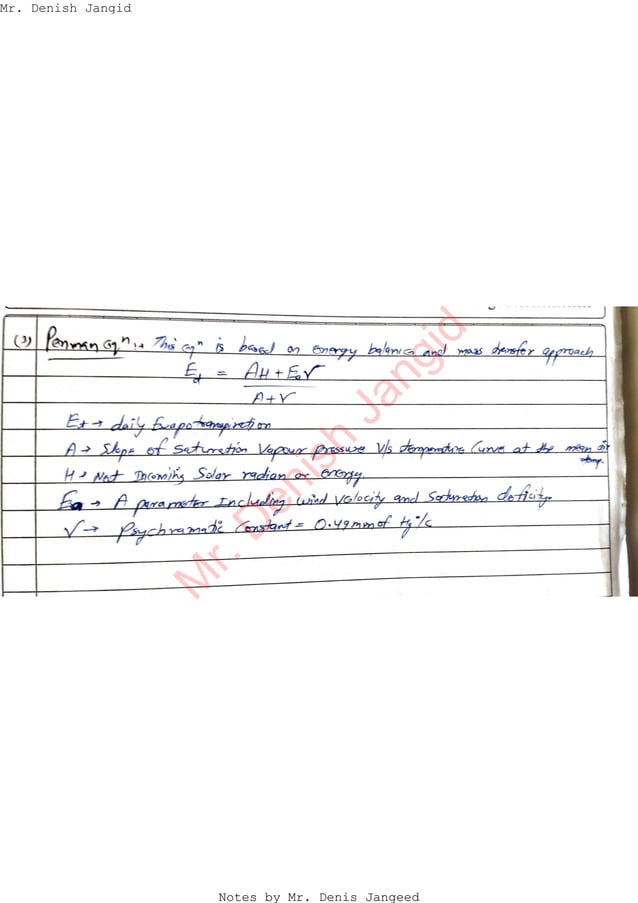 Mr. Denish Jangid
(3) Penman Eqⁿ :→ This eqⁿ is based on energy balance and mass transfer approach
Et = AH + Ea √
A + √
Et → daily Evapotranspiration
A → Slope of saturation Vapour pressure V/s temperature Curve at the mean air
temp.
H → Net Incoming Solar radian or energy
Ea → A parameter Including wind Velocity and Saturation deficity
√ → Psychramatic Constant = 0.49 mm of Hg °/c
Mr. Denish Jangid
Notes by Mr. Denis Jangeed